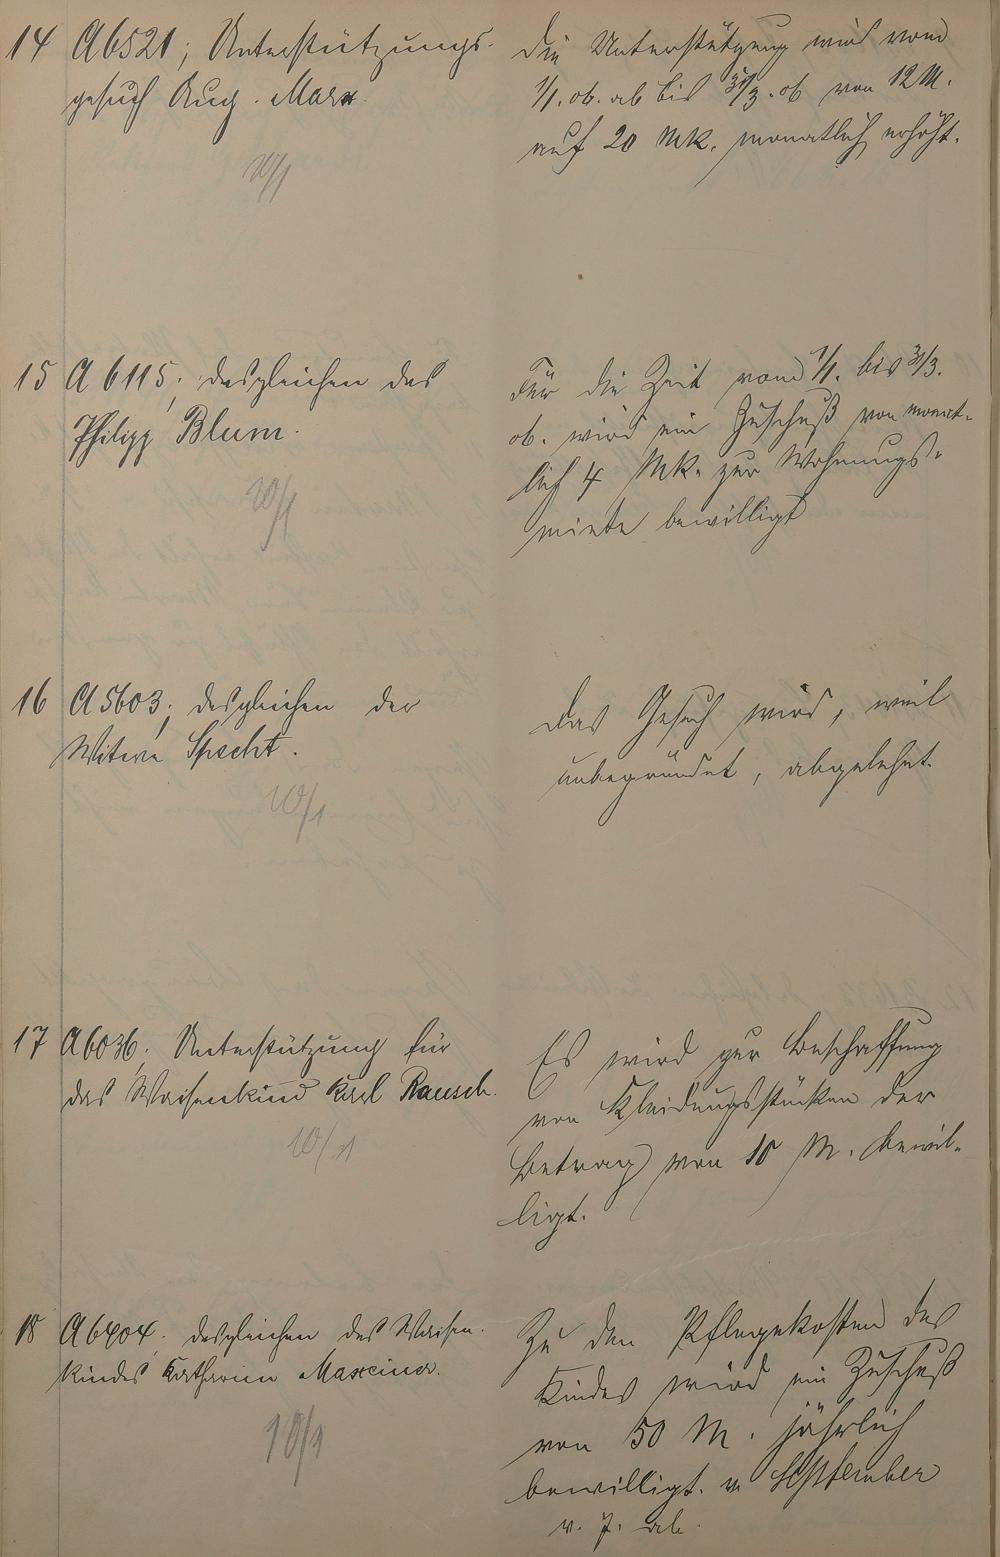 14 A 6521; Unterstützungs-
gesuch Aug. Marx.
10/1
Die Unterstützung wird vom
1/1. 06. ab bis 31/3. 06 von 12 M.
auf 20 Mk. monatlich erhöht.
15 A 6115; desgleichen des
Philipp Blum.
10/1
Für die Zeit vom 1/1. bis 31/3.
06. wird ein Zuschuß von monat-
lich 4 Mk. zur Wohnungs-
miete bewilligt
16 A 5603; desgleichen der
Witwe Specht.
10/1
Das Gesuch wird, weil
unbegründet, abgelehnt.
17 A 6036; Unterstützung für
das Waisenkind Karl Rausch.
10/1
Es wird zur Beschaffung
von Kleidungsstücken der
Betrag von 10 M. bewil-
ligt.
18 A 6404; desgleichen des Waisen-
kindes Katharina Maxeiner.
10/1
Zu den Pflegekosten des
Kindes wird ein Zuschuß
von 50 M. jährlich
bewilligt. v. September
v. J. ab.